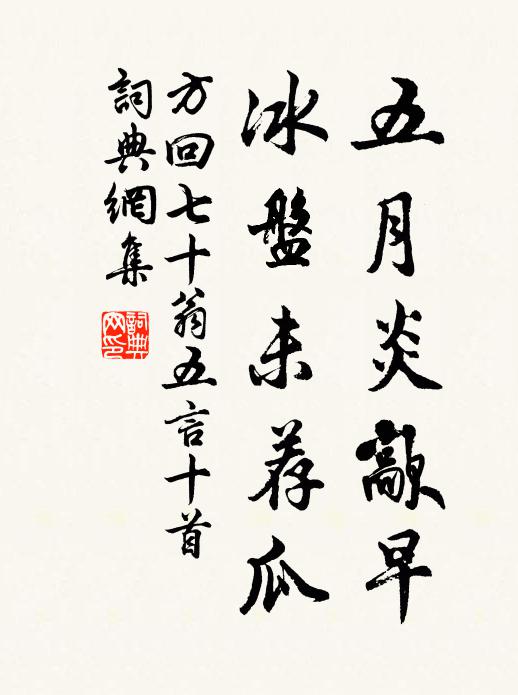 五月炎歊早
冰盤未荐瓜
方回七十翁五言十首
詞典網集
詞典网印